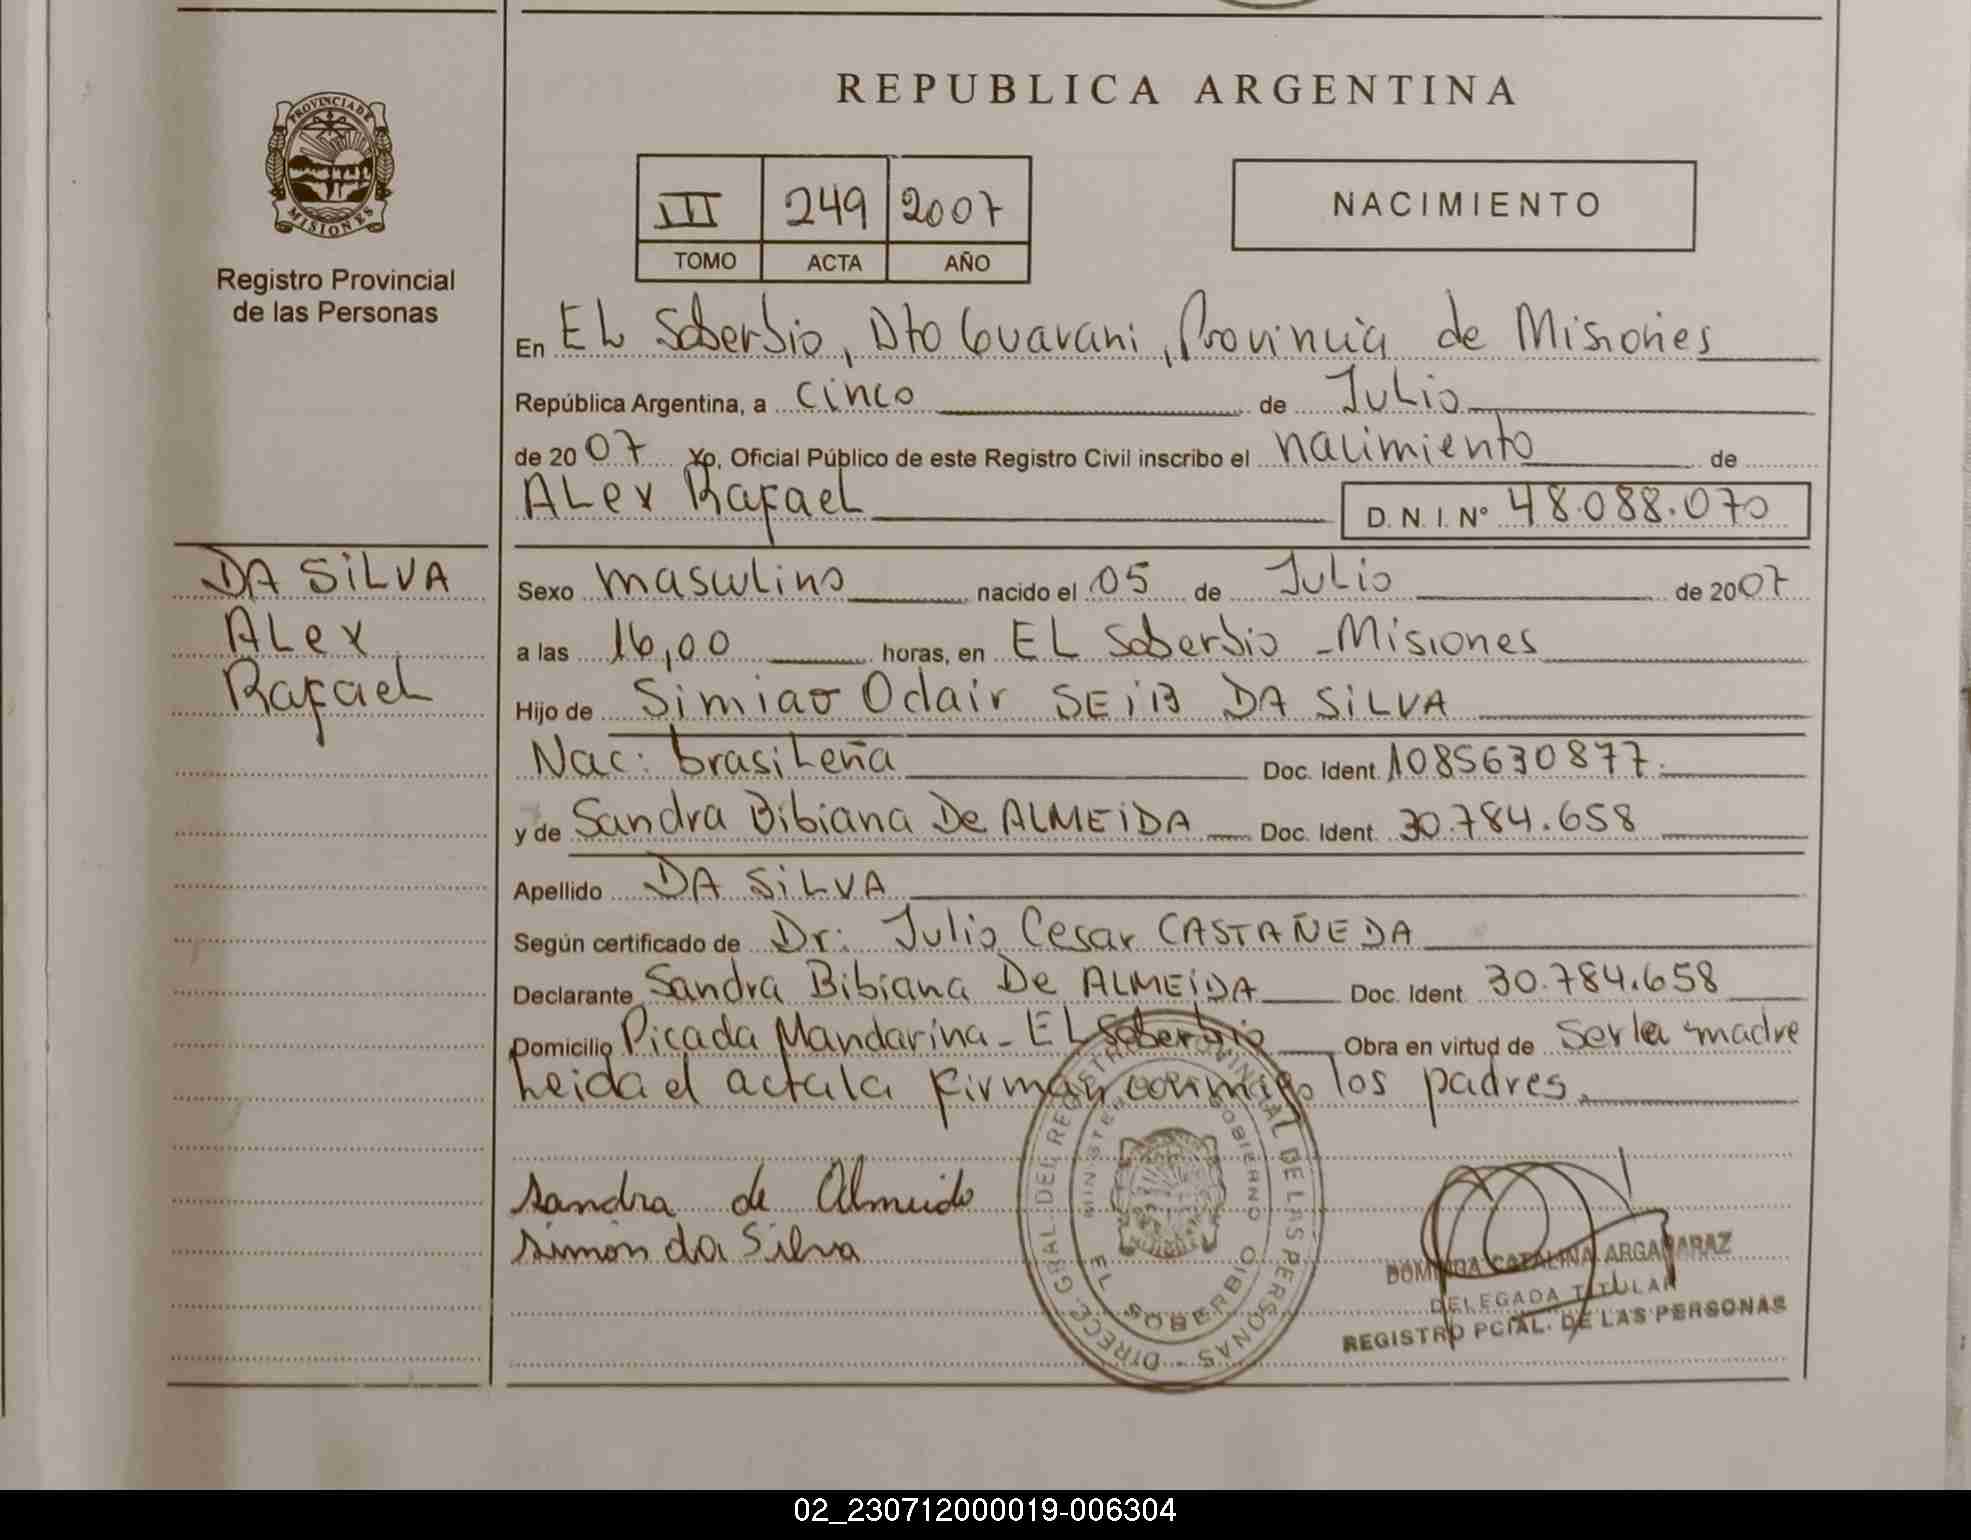 REPUBLICA ARGENTINA
PROVINCIA DE MISIONES
Registro Provincial
de las Personas
III 249 2007
TOMO ACTA AÑO
NACIMIENTO
En EL Soberbio, Dto Guarani, Provincia de Misiones
República Argentina, a cinco de Julio
de 2007 Yo, Oficial Público de este Registro Civil inscribo el nacimiento de
ALex Rafael D. N. I. N° 48.088.070
DA SiLVA
ALex
Rafael
Sexo masculino nacido el 05 de Julio de 2007
a las 16,00 horas, en EL Soberbio - Misiones
Hijo de Simiao Odair SEiB DA SiLVA
Nac: brasileña Doc. Ident. 1085630877.
y de Sandra Bibiana De ALMEiDA Doc. Ident. 30.784.658
Apellido DA SiLVA
Según certificado de Dr: Julio Cesar CASTAÑEDA
Declarante Sandra Bibiana De ALMEiDA Doc. Ident. 30.784.658
Domicilio Picada Mandarina - EL Soberbio Obra en virtud de Ser la madre
Leida el acta la firman conmigo los padres.
Sandra de Almeida
Simon da Silva
DIRECC. GRAL. DEL REGISTRO PROVINCIAL DE LAS PERSONAS
MINISTERIO DE GOBIERNO
EL SOBERBIO
CATALINA ARGAÑARAZ
DELEGADA TITULAR
REGISTRO PCIAL. DE LAS PERSONAS
02_230712000019-006304